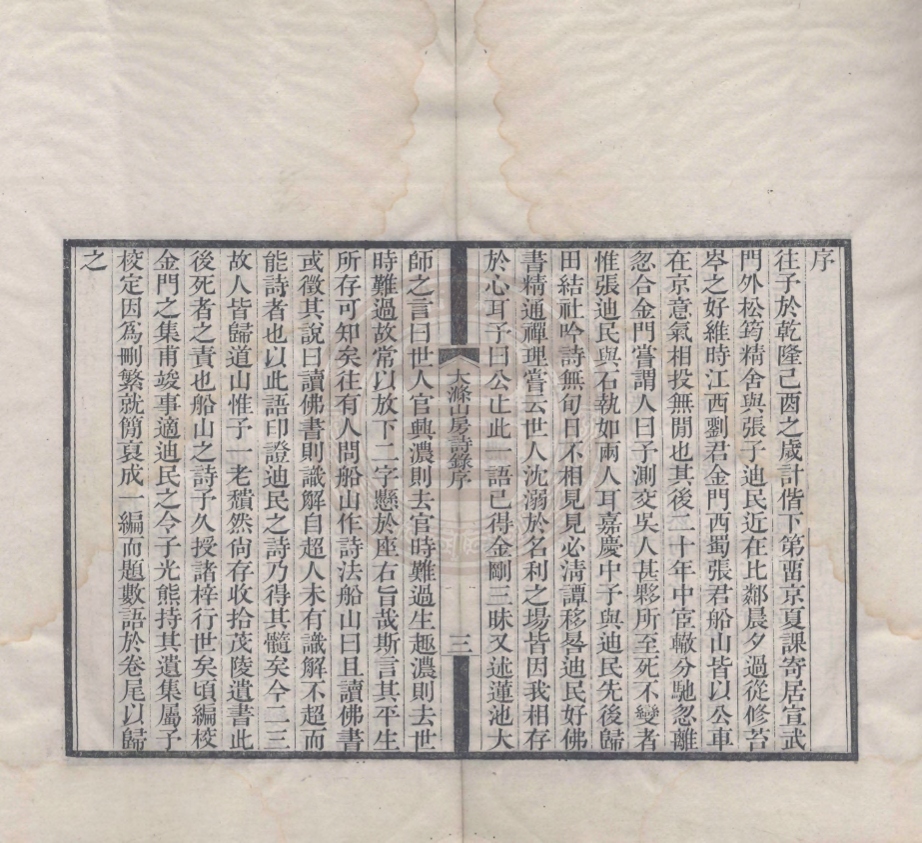 序
往予於乾隆己酉之歲計偕下第畱京夏課寄居宣武
門外松筠精舍與張子迪民近在比鄰晨夕過從修苔
岑之好維時江西劉君金門西蜀張君船山皆以公車
在京意氣相投無閒也其後二十年中宦轍分馳忽離
忽合金門嘗謂人曰予測交吳人甚夥所至死不變者
惟張迪民與石執如兩人耳嘉慶中予與迪民先後歸
田結社吟詩無旬日不相見見必清譚移晷迪民好佛
書精通禪理嘗云世人沈溺於名利之場皆因我相存
於心耳予曰公止此一語已得金剛三昧又述蓮池大
大滌山房詩錄序
三
師之言曰世人官興濃則去官時難過生趣濃則去世
時難過故常以放下二字懸於座右旨哉斯言其平生
所存可知矣往有人問船山作詩法船山曰且讀佛書
或徵其說曰讀佛書則識解自超人未有識解不超而
能詩者也以此語印證迪民之詩乃得其髓矣今二三
故人皆歸道山惟予一老穨然尙存收拾茂陵遺書此
後死者之責也船山之詩予久授諸梓行世矣頃編校
金門之集甫竣事適迪民之令子光熊持其遺集屬予
校定因爲刪繁就簡裒成一編而題數語於卷尾以歸
之